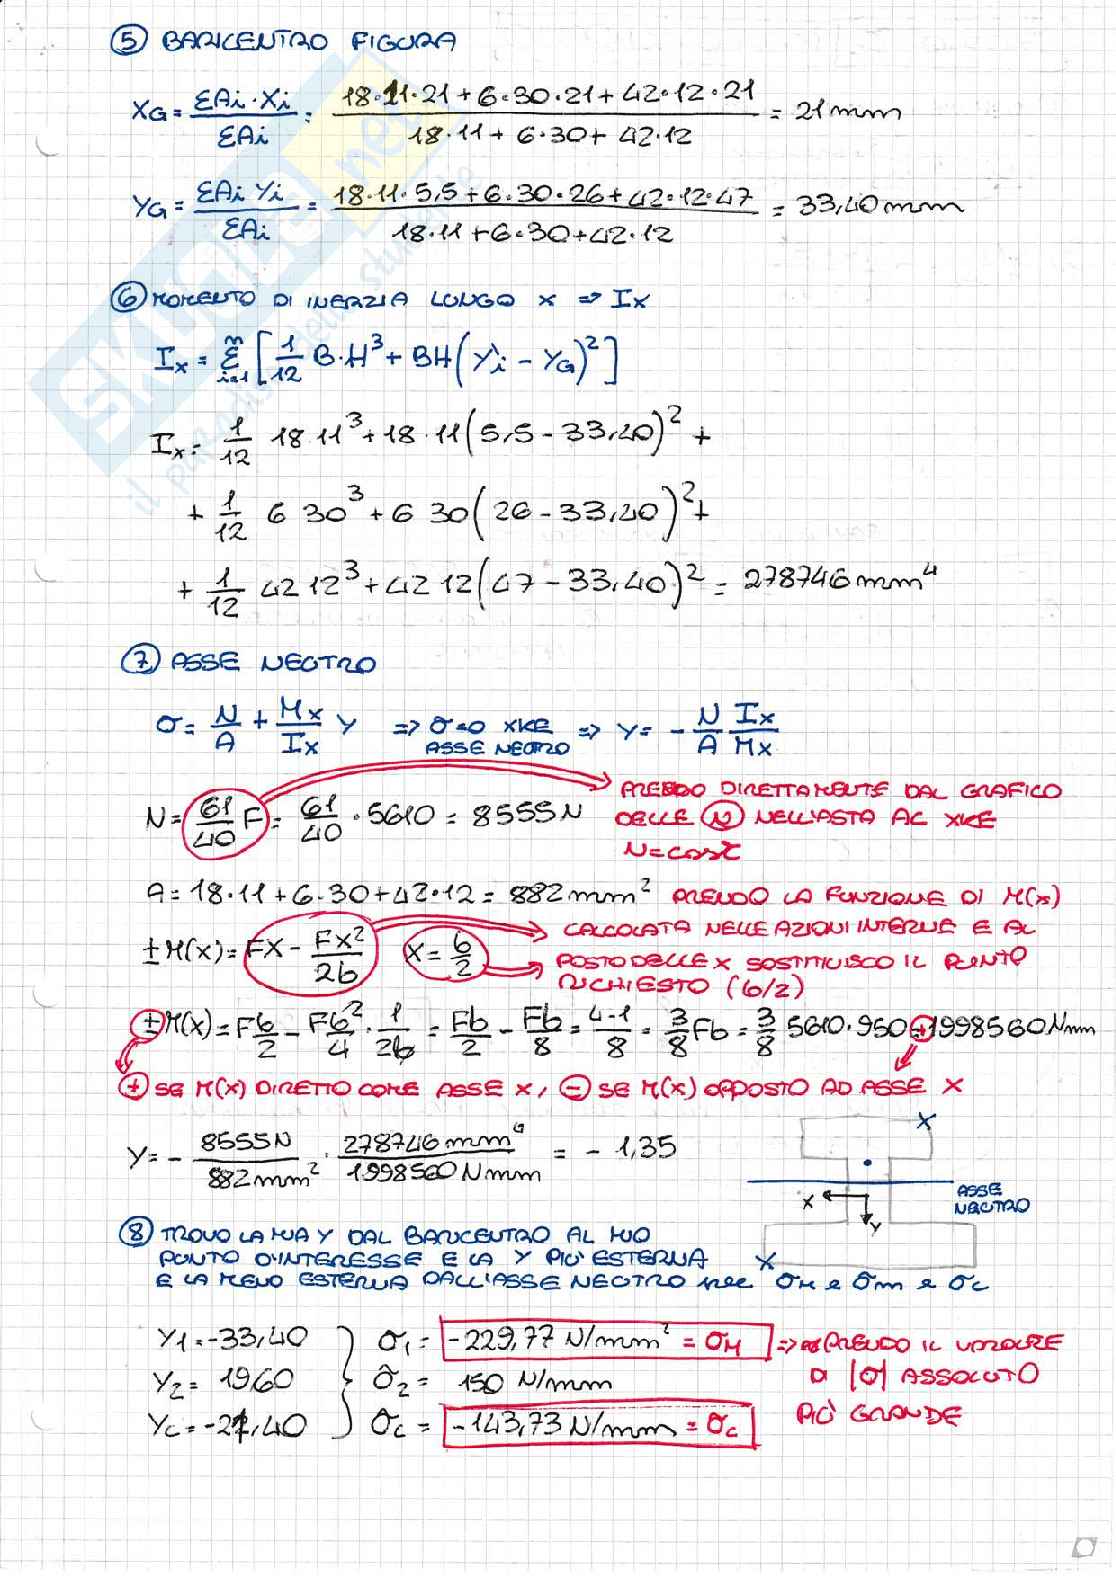 ⑤ BARICENTRO FIGURA
XG = ΣAi·Xi / ΣAi = (18·11·21 + 6·30·21 + 42·12·21) / (18·11 + 6·30 + 42·12) = 21 mm
YG = ΣAi Yi / ΣAi = (18·11·5,5 + 6·30·26 + 42·12·47) / (18·11 + 6·30 + 42·12) = 33,40 mm
⑥ MOMENTO DI INERZIA LUNGO X ⇒ Ix
Ix = Σ i=1 n [1/12 B·H³ + BH(Yi - YG)²]
Ix = 1/12 18 11³ + 18·11(5,5 - 33,40)² +
+ 1/12 6 30³ + 6 30(26 - 33,40)² +
+ 1/12 42 12³ + 42 12(47 - 33,40)² = 278746 mm⁴
⑦ ASSE NEUTRO
σ = N/A + Mx/Ix Y ⇒ σ=0 XKE ASSE NEUTRO ⇒ Y = - N/A Ix/Mx
N = 61/40 F = 61/40 · 5610 = 8555 N
PRENDO DIRETTAMENTE DAL GRAFICO
DELLE Ⓝ NELL'ASTA AC XKE
N = cost
A = 18·11 + 6·30 + 42·12 = 882 mm² PRENDO LA FUNZIONE DI M(x)
± M(x) = FX - FX²/2b X = b/2 CALCOLATA NELLE AZIONI INTERNE E AL
POSTO DELLE X SOSTITUISCO IL PUNTO
RICHIESTO (b/2)
± M(x) = Fb/2 - Fb²/4 · 1/2b = Fb/2 - Fb/8 = 4-1/8 = 3/8 Fb = 3/8 5610·950 = +1998560 Nmm
⊕ SE M(x) DIRETTO COME ASSE X, ⊖ SE M(x) OPPOSTO AD ASSE X
Y = - 8555 N / 882 mm² · 278746 mm⁴ / 1998560 N mm = - 1,35
X
ASSE
NEUTRO
X
Y
X
⑧ TROVO LA MIA Y DAL BARICENTRO AL MIO
PUNTO D'INTERESSE E LA Y PIÙ ESTERNA
E LA MENO ESTERNA DALL'ASSE NEUTRO per σM e σm e σc
Y1 = -33,40 σ1 = -229,77 N/mm² = σM ⇒ PRENDO IL VALORE
Y2 = 19,60 σ2 = 150 N/mm DI |σ| ASSOLUTO
Yc = -21,40 σc = -143,73 N/mm = σc PIÙ GRANDE
SKUOLA.net
il paradiso dello studente